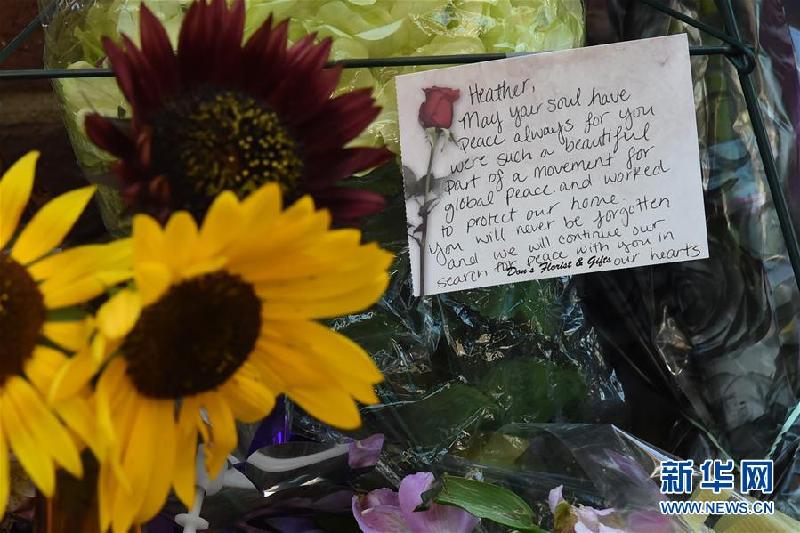 Heather,
May your soul have
peace always for you
were such a beautiful
part of a movement for
global peace and worked
to protect our home.
You will never be forgotten
and we will continue our
search for peace with you in
Don's Florist & Gifts our hearts
新华网
WWW.NEWS.CN